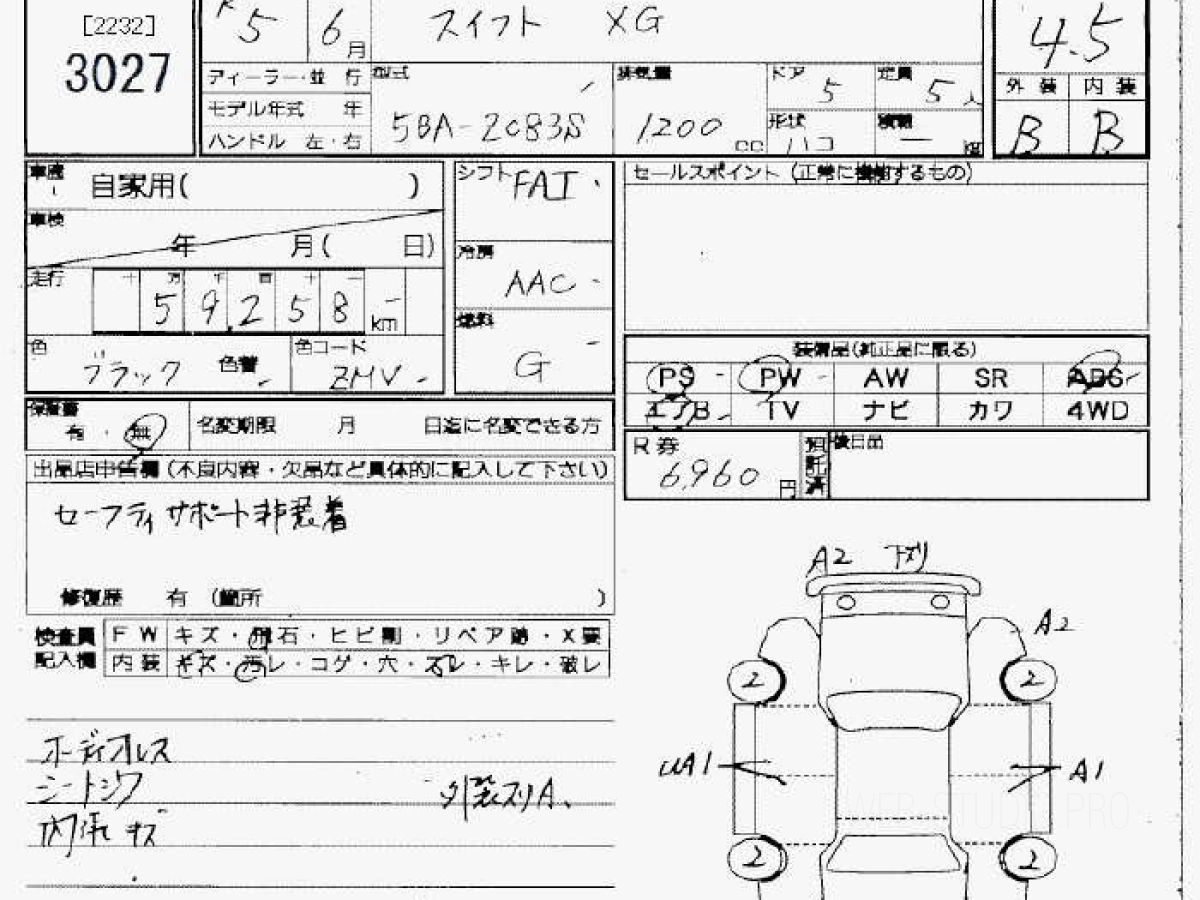 [2232]
3027
R 5 6月
スイフト XG
4.5
ディーラー・並 行
モデル年式 年
ハンドル 左・右
型式
5BA-ZC83S
排気量
1200 cc
ドア 5
定員 5人
形状 ハコ
積載 ー
外装 内装
B B
車歴 自家用( )
車検 年 月( 日)
走行
十 万 千 百 十 一
59,258 km
色 ブラック 色替
色コード ZMV
シフト FAT
冷房 AAC
燃料 G
セールスポイント (正常に機能するもの)
装備品(純正品に限る)
PS PW AW SR ABS
エアB TV ナビ カワ 4WD
保証書 有・無
名変期限 月 日迄に名変できる方
R券 6,960 円
預託済
後日品
出品店申告欄(不良内容・欠品など具体的に記入して下さい)
セーフティサポート非装着
修復歴 有 (箇所 )
検査員記入欄
FW キズ・飛石・ヒビ割・リペア跡・X要
内装 キズ・汚レ・コゲ・穴・スレ・キレ・破レ
シートシワ
内張キズ
外装スリA、
A2 下スリ
A2
2 2
UA1
A1
2 2
WEB STUDIO PRO